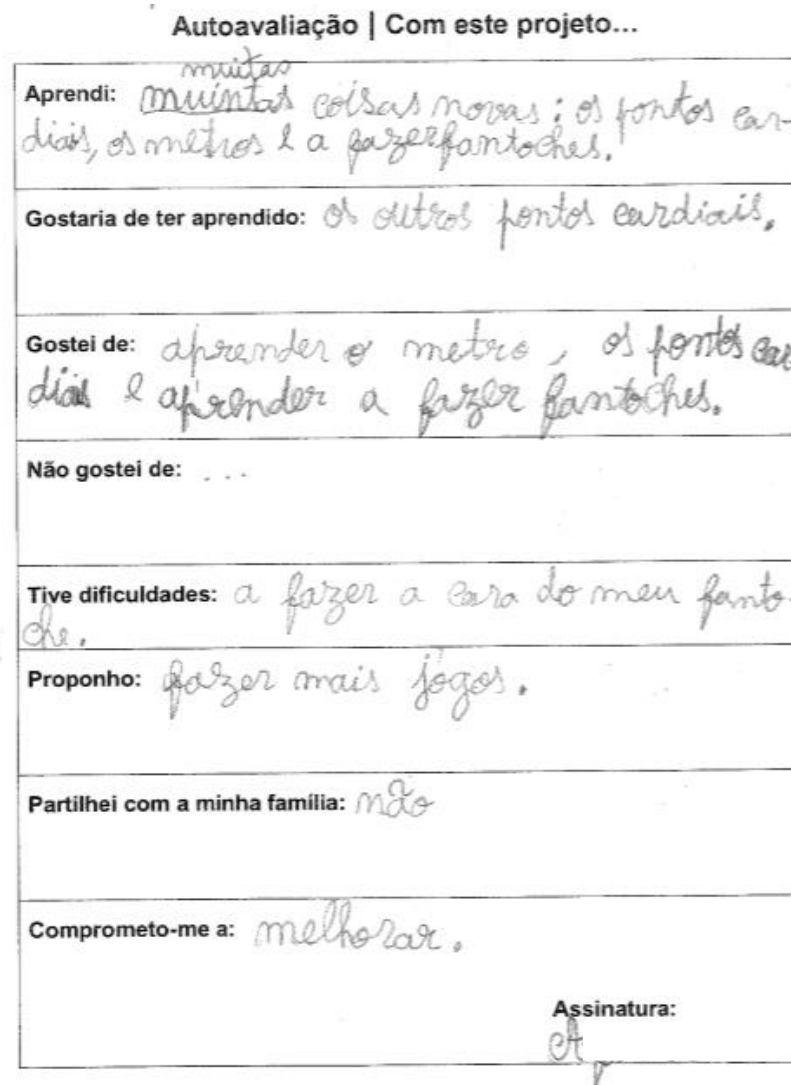 Autoavaliação | Com este projeto...
muitas
Aprendi: muintas coisas novas: os pontos car-
diais, os metros e a fazer fantoches.
Gostaria de ter aprendido: os outros pontos cardiais.
Gostei de: aprender o metro, os pontos car
diais e aprender a fazer fantoches.
Não gostei de: ...
Tive dificuldades: a fazer a cara do meu fanto-
che.
Proponho: fazer mais jogos.
Partilhei com a minha família: não
Comprometo-me a: melhorar.
Assinatura: